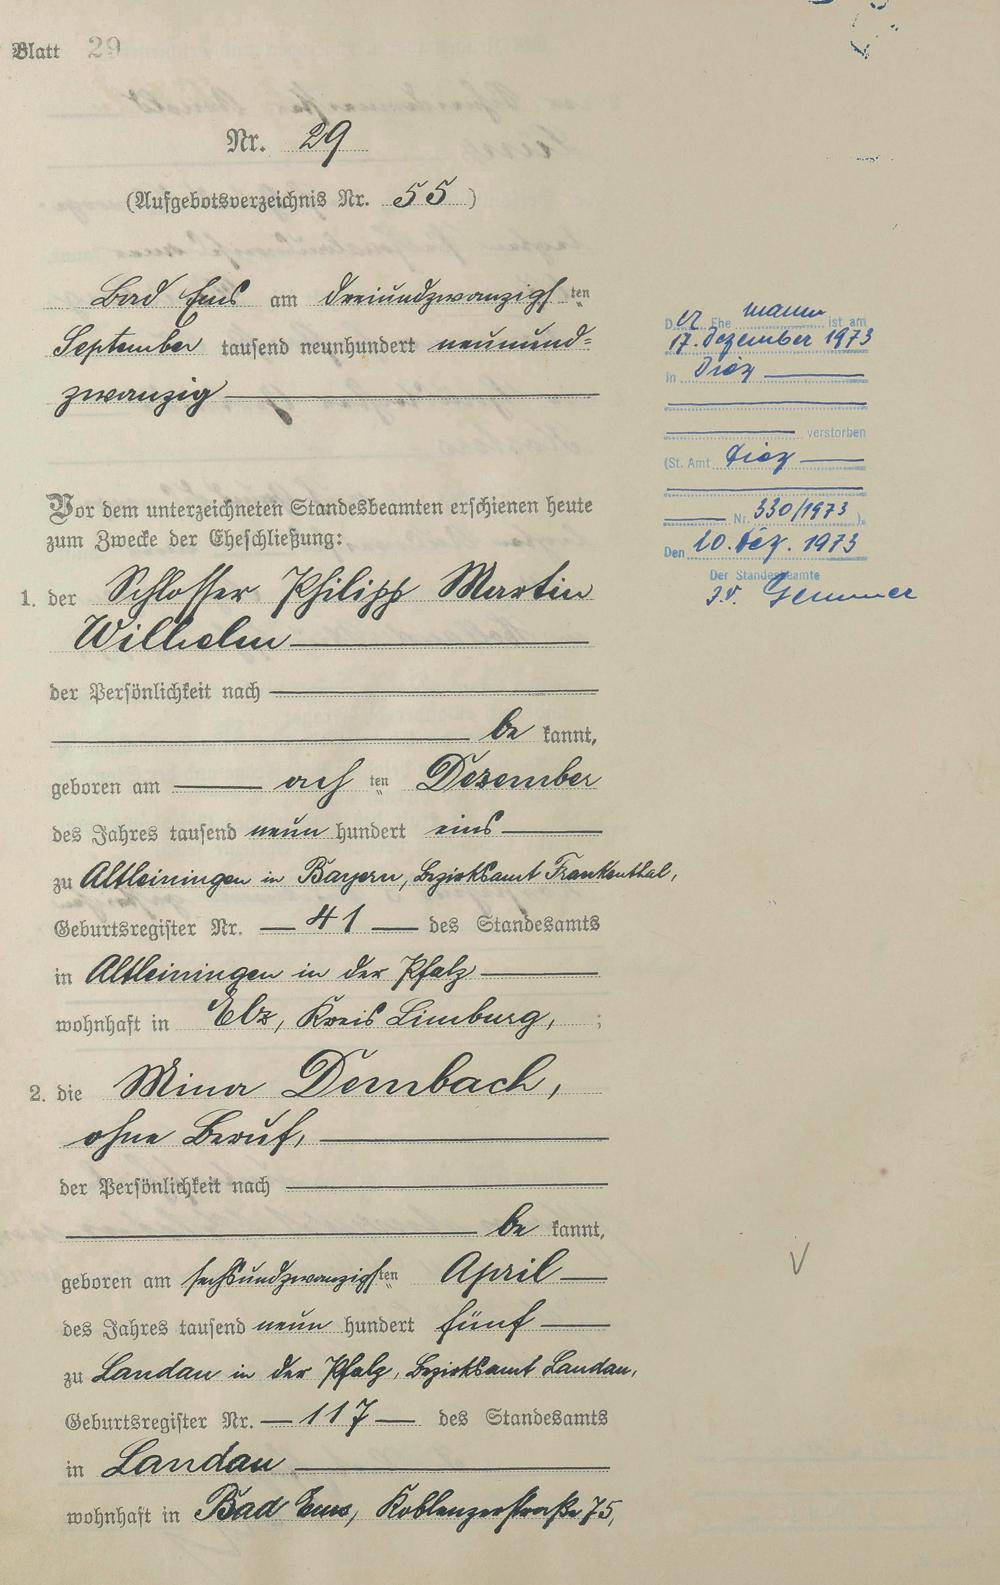 Blatt 29
Nr. 29
(Aufgebotsverzeichnis Nr. 55)
Bad Ems am dreiundzwanzigsten
September tausend neunhundert neunund=
zwanzig
Vor dem unterzeichneten Standesbeamten erschienen heute
zum Zwecke der Eheschließung:
1. der Schlosser Philipp Martin
Wilhelm
der Persönlichkeit nach
be kannt,
geboren am ach ten Dezember
des Jahres tausend neun hundert eins
zu Altleiningen in Bayern, Bezirksamt Frankenthal,
Geburtsregister Nr. 41 des Standesamts
in Altleiningen in der Pfalz
wohnhaft in Elz, Kreis Limburg, ;
2. die Mina Dernbach,
ohne Beruf,
der Persönlichkeit nach
be kannt,
geboren am sechsundzwanzigsten April
des Jahres tausend neun hundert fünf
zu Landau in der Pfalz, Bezirksamt Landau,
Geburtsregister Nr. 117 des Standesamts
in Landau
wohnhaft in Bad Ems, Koblenzerstraße 75,
Der Ehe mann ist am
17. Dezember 1973
in Diez
verstorben
(St. Amt Diez
Nr. 330/1973 ).
Den 20. Dez. 1973
Der Standesbeamte
I.V.